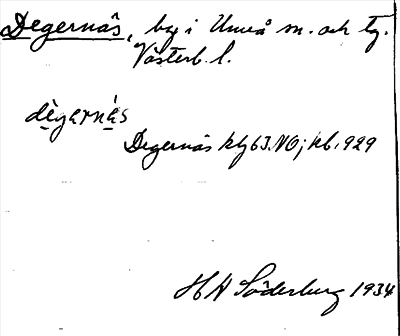 Degernäs, by i Umeå sn. och tg.
Västerb. l.
dègernás
Degernäs kbl 63.NO; hb. 929
H A Söderberg 1934